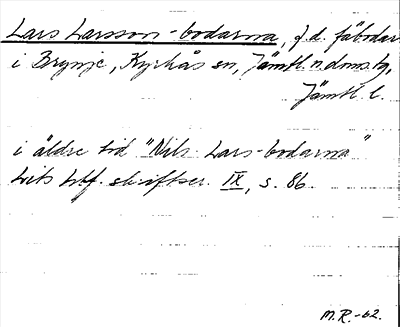 Lars Larsson-bodarna, f.d. fäbodar
i Brynje, Kyrkås sn, Jämtl. n. doms.,
Jämtl. l.
i äldre tid "Nils-Lars-bodarna"
skriftser. IX, s. 86.
M.R.-62.